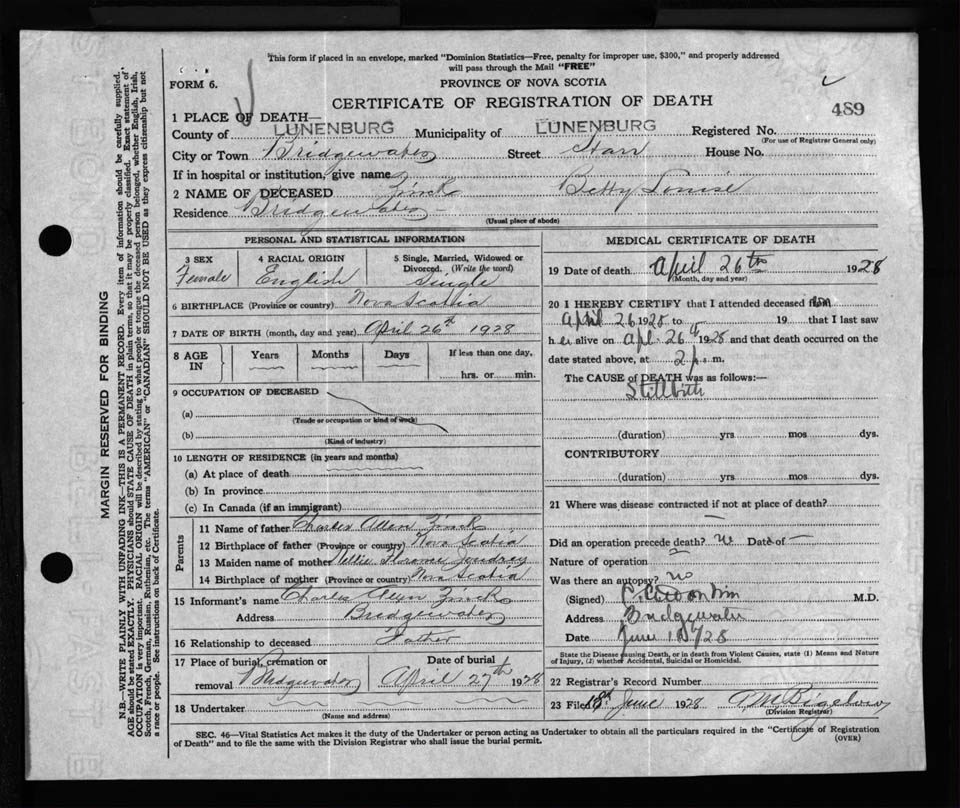 This form if placed in an envelope, marked "Dominion Statistics—Free, penalty for improper use, $300," and properly addressed
will pass through the Mail "FREE"
FORM 6.
PROVINCE OF NOVA SCOTIA
CERTIFICATE OF REGISTRATION OF DEATH
489
1 PLACE OF DEATH—
County of LUNENBURG Municipality of LUNENBURG Registered No.
(For use of Registrar General only)
City or Town Bridgewater Street Starr House No.
If in hospital or institution, give name
2 NAME OF DECEASED Zinck Betty Louise
Residence Bridgewater
(Usual place of abode)
PERSONAL AND STATISTICAL INFORMATION
3 SEX 4 RACIAL ORIGIN 5 Single, Married, Widowed or
Divorced. (Write the word)
Female English Single
6 BIRTHPLACE (Province or country) Nova Scotia
7 DATE OF BIRTH (month, day and year) April 26th 1928
8 AGE IN Years Months Days If less than one day,
hrs. or min.
9 OCCUPATION OF DECEASED
(a)
(Trade or occupation or kind of work)
(b)
(Kind of industry)
10 LENGTH OF RESIDENCE (in years and months)
(a) At place of death
(b) In province
(c) In Canada (if an immigrant)
Parents
11 Name of father Charles Allen Zinck
12 Birthplace of father (Province or country) Nova Scotia
13 Maiden name of mother Nellie Florence
14 Birthplace of mother (Province or country) Nova Scotia
15 Informant's name Charles Allen Zinck
Address Bridgewater
16 Relationship to deceased Father
17 Place of burial, cremation or Date of burial
removal Bridgewater April 27th 1928
18 Undertaker
(Name and address)
MEDICAL CERTIFICATE OF DEATH
19 Date of death April 26th 1928
(Month, day and year)
20 I HEREBY CERTIFY that I attended deceased from
April 26 1928 to 19 that I last saw
her alive on Apl. 26th 1928 and that death occurred on the
date stated above, at 2 p.m.
The CAUSE of DEATH was as follows:—
Stillbirth
(duration) yrs mos dys.
CONTRIBUTORY
(duration) yrs mos dys.
21 Where was disease contracted if not at place of death?
—
Did an operation precede death? no Date of —
Nature of operation
Was there an autopsy? no
(Signed) M.D.
Address Bridgewater
Date June 1928
State the Disease causing Death, or in death from Violent Causes, state (1) Means and Nature
of Injury, (2) whether Accidental, Suicidal or Homicidal.
22 Registrar's Record Number
23 Filed 18th June 1928 Bigelow
(Division Registrar)
SEC. 46—Vital Statistics Act makes it the duty of the Undertaker or person acting as Undertaker to obtain all the particulars required in the "Certificate of Registration
of Death" and to file the same with the Division Registrar who shall issue the burial permit.
(OVER)
MARGIN RESERVED FOR BINDING
N.B.—WRITE PLAINLY WITH UNFADING INK—THIS IS A PERMANENT RECORD. Every item of information should be carefully supplied.
AGE should be stated EXACTLY. PHYSICIANS should STATE CAUSE OF DEATH in plain terms, so that it may be properly classified. Exact statement of
OCCUPATION is very important. RACIAL ORIGIN will be described by stating to what people or tongue the deceased person belonged, whether English, Irish,
Scotch, French, German, Russian, Ruthenian, etc. The terms "AMERICAN" or "CANADIAN" SHOULD NOT BE USED as they express citizenship but not
a race or people. See instructions on back of Certificate.